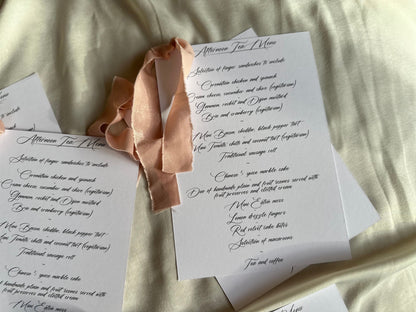 Afternoon Tea Menu
Selection of finger sandwiches to include
Coronation chicken and spinach
Cream cheese, cucumber and chive (vegetarian)
Glamman rocket and Dijon mustard
Brie and cranberry (vegetarian)
~
Mini Bacon, cheddar, black pepper tart
Mini Tomato, chilli and coconut tart (vegetarian)
Traditional sausage roll
~
Cheeses & guava marble cake
Duo of handmade plain and fruit scones served with
fruit preserves and clotted cream
Mini Eton mess
Lemon drizzle fingers
Red velvet cake bites
Selection of macaroons
Tea and coffee
Afternoon Tea Menu
Selection of finger sandwiches to include
Coronation chicken and spinach
Cream cheese, cucumber and chive (vegetarian)
rocket and Dijon mustard
Brie and cranberry (vegetarian)
~
Mini Bacon, cheddar, black pepper tart
Mini Tomato, chilli and coconut tart (vegetarian)
Traditional sausage roll
~
marble cake
Duo of handmade plain and fruit scones served with
fruit preserves and clotted cream
Mini Eton mess